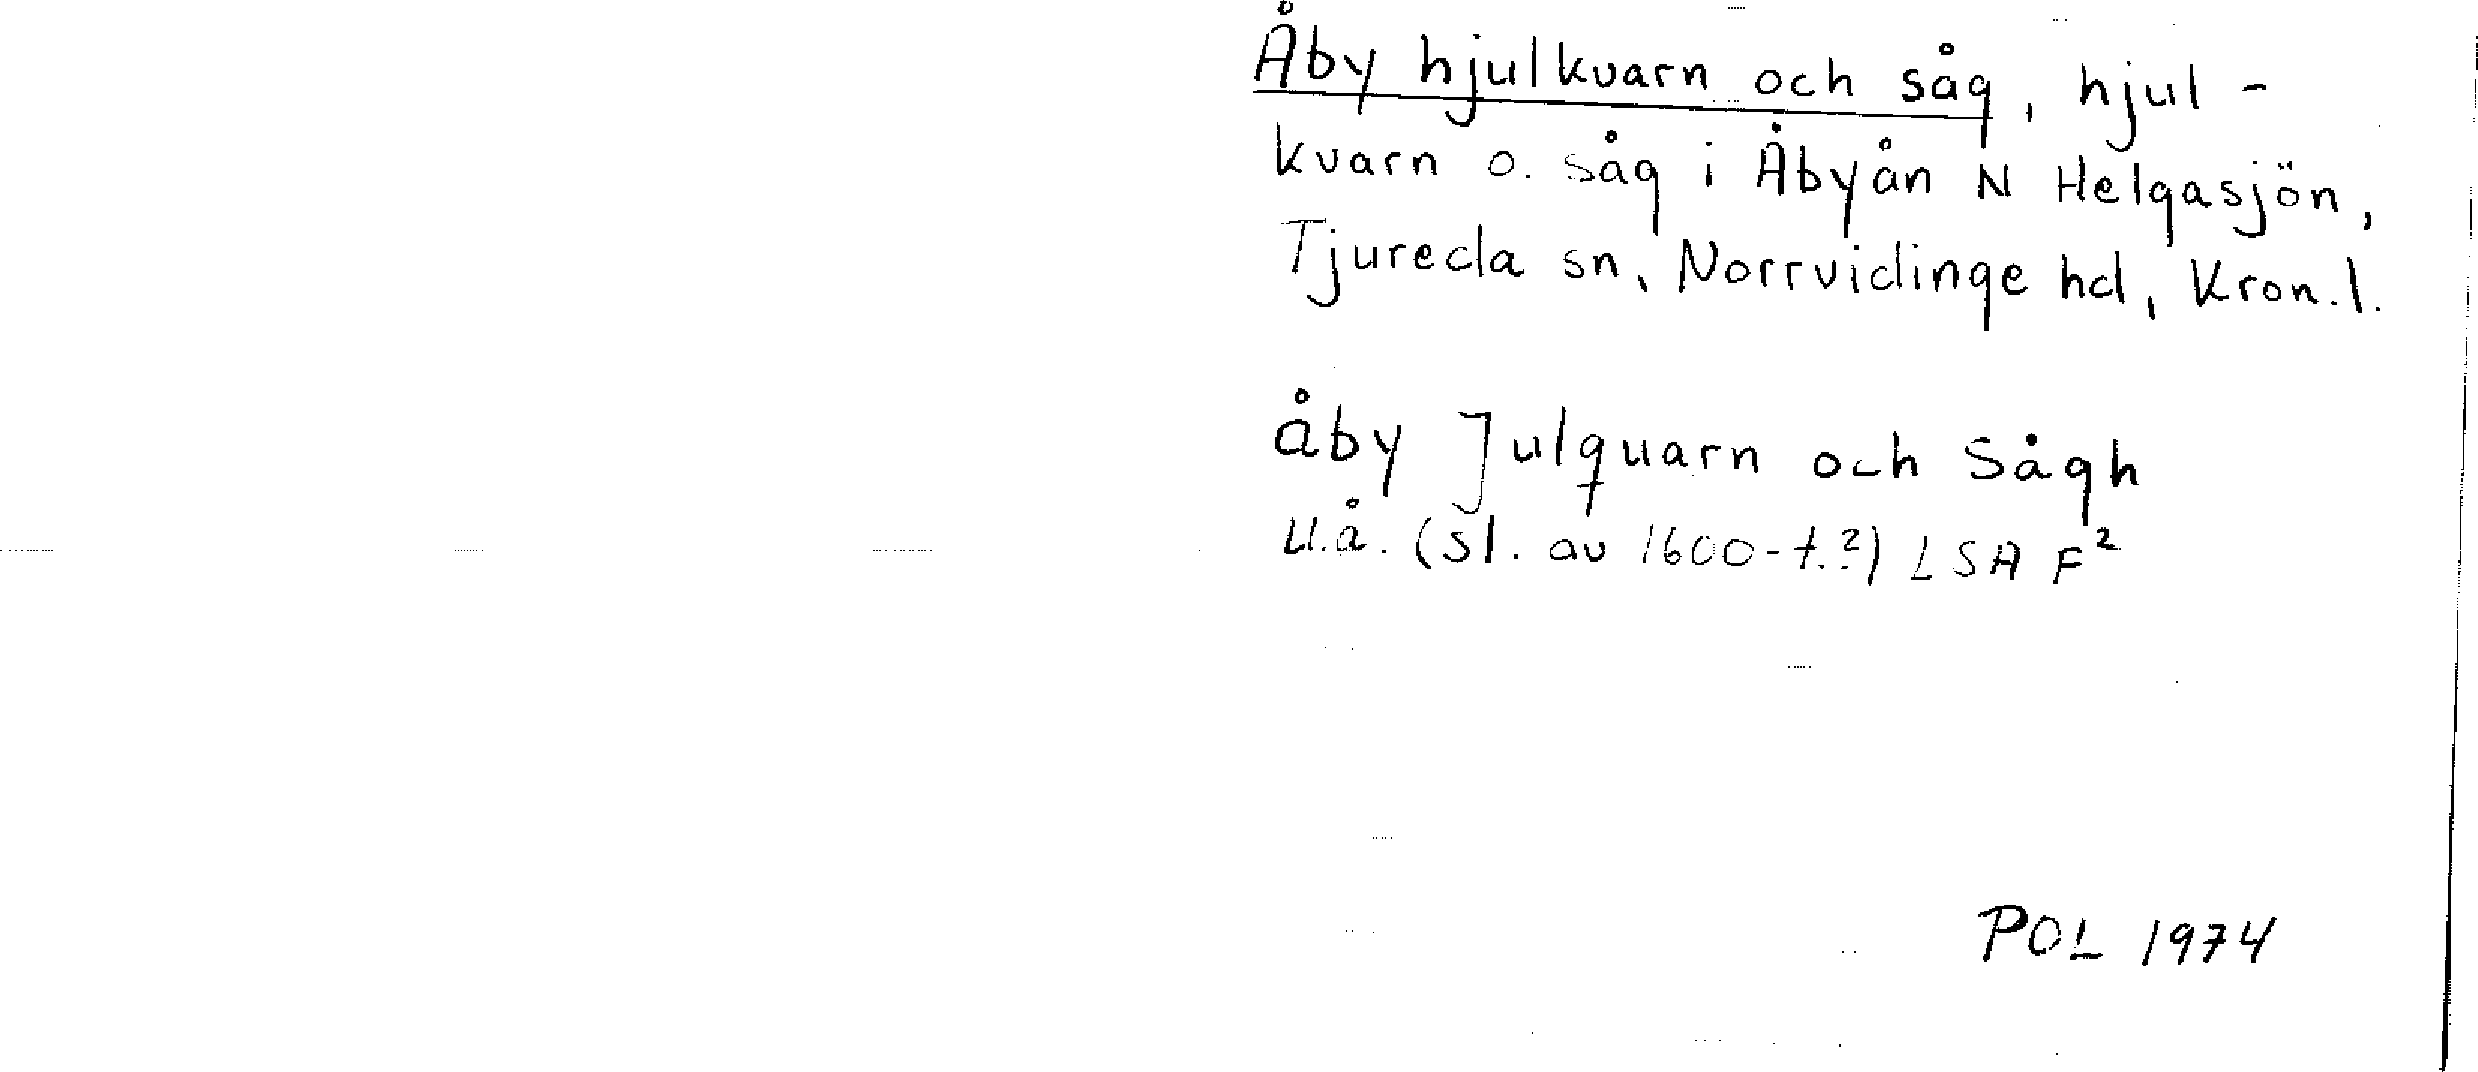 Åby hjulkvarn och såg, hjul-
kvarn o. såg i Åbyån N Helgasjön,
Tjureda sn, Norrvidinge hd, Kron.l.
åby Julquarn och Sågh
U.å. (sl. av 1600-t.?) LSA F²
POL 1974